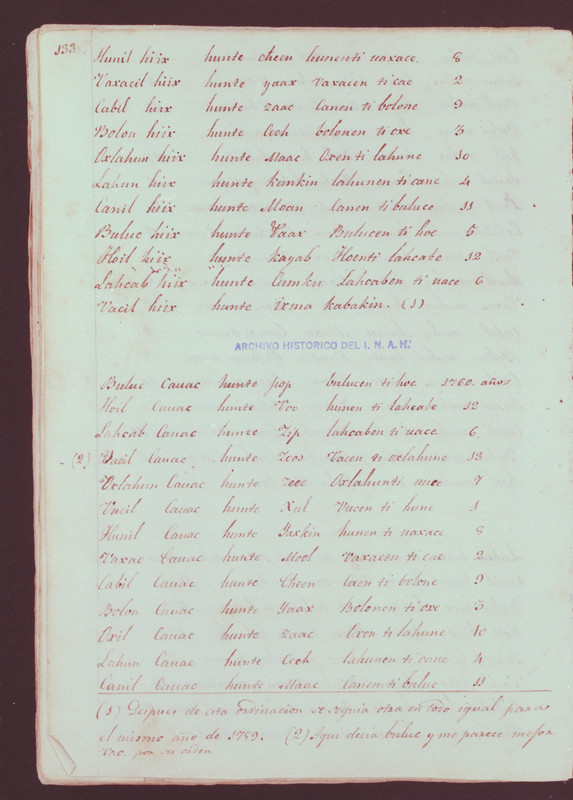 133
Hunil hiix hunte cheen hunenti uaxace. 8
Vaxacil hiix hunte yaax Vaxacen ti cae 2
Cabil hiix hunte zaac Canen ti bolone 9
Bolon hiix hunte Ceeh bolonen ti oxe 3
Oxlahun hiix hunte Maac Oxen ti lahune 10
Lahun hiix hunte Kankin lahunen ti cane 4
Canil hiix hunte Moan Canen ti buluce 11
Buluc hiix hunte Paax Bulucen ti hoe 5
Hoil hiix hunte Kayab Hoenti lahcabe 12
Lahcab hiix hunte Cumku Lahcaben ti uace 6
Vacil hiix hunte ixma kabakin. (1)
ARCHIVO HISTORICO DEL I. N. A. H.
Buluc Cauac hunte pop bulucen ti hoe 1760. años
Hoil Cauac hunte Voo hunen ti lahcabe 12
Lahcab Cauac hunte Zip lahcaben ti uace 6.
(2) Vacil Cauac hunte Zoos Vacen ti oxlahune 13
Oxlahun Cauac hunte Zeec Oxlahunti uuce 7
Vucil Cauac hunte Xul Vucen ti hune 1
Hunil Cauac hunte Yaxkin hunen ti uaxace 8
Vaxac Cauac hunte Mool Vaxacen ti cae 2
Cabil Cauac hunte Cheen Caen ti bolone 9
Bolon Cauac hunte Yaax Bolonen ti oxe 3
Oxil Cauac hunte zaac Oxen ti lahune 10
Lahun Cauac hunte Ceeh lahunen ti cane 4
Canil Cauac hunte Maac Canen ti buluc 11
(1) Despues de esta ordinacion se seguia otra en todo igual para
el mismo año de 1759. (2) Aqui decia buluc y me parece mejor
Vac. por su orden